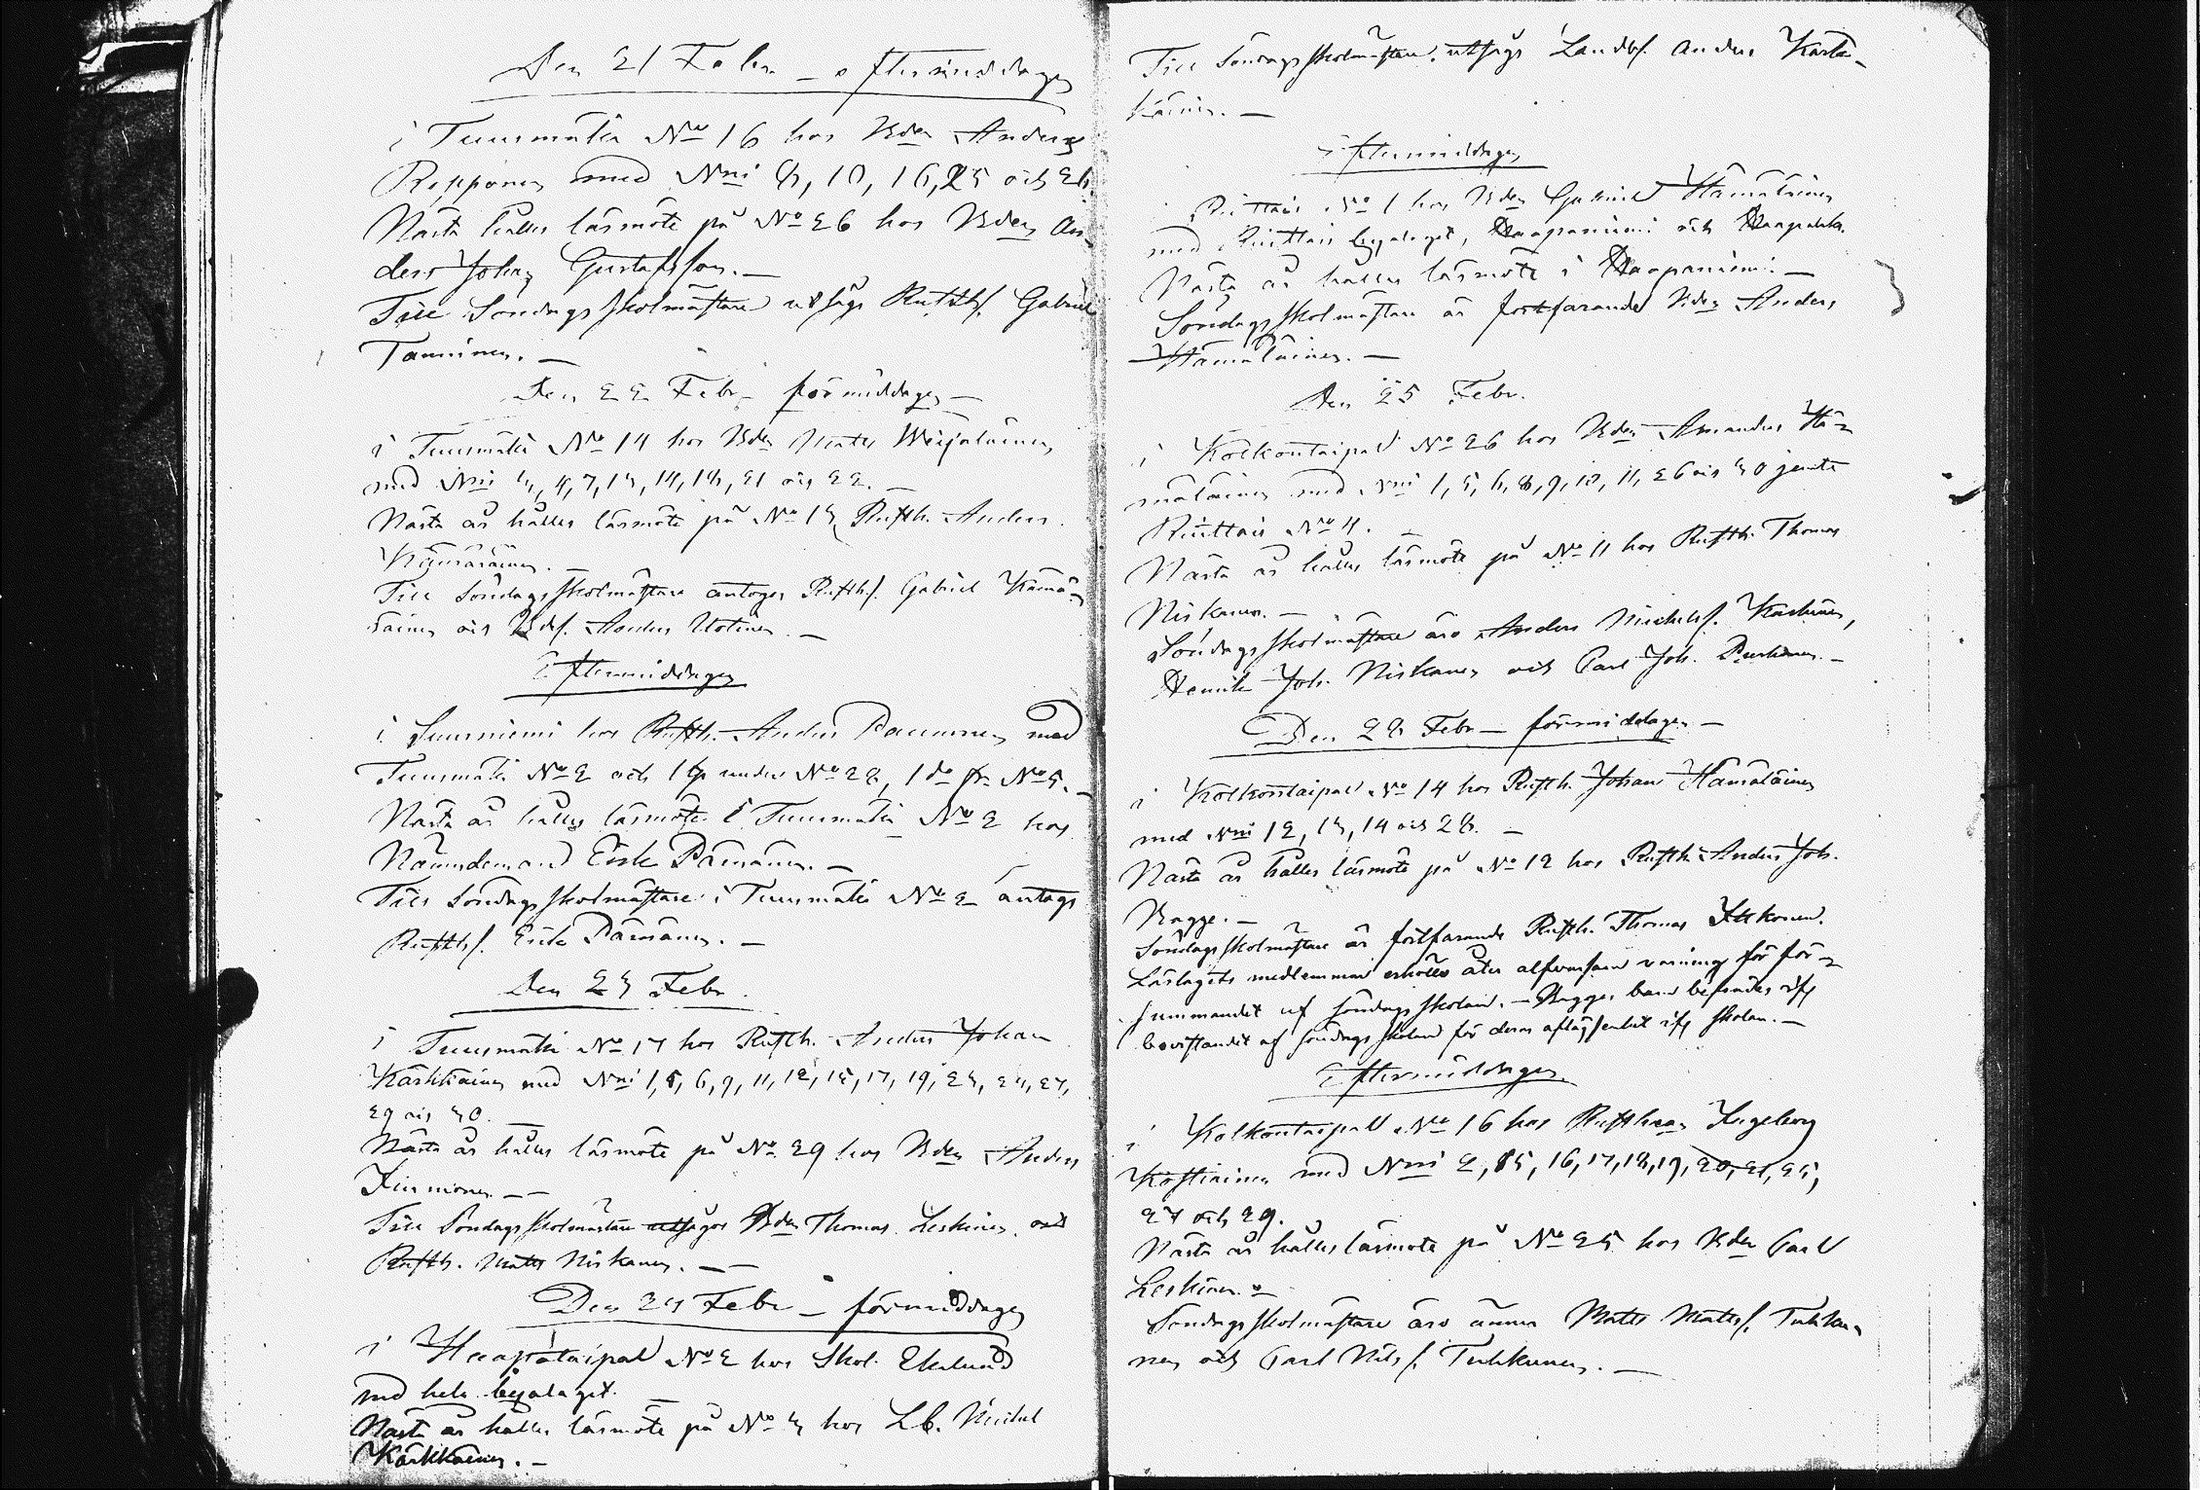 Den 21 Febr. – eftermiddagen
i Tuusmäki No 16 hos Bdn Anders
Repponen med Nrri 8, 10, 16, 25 och 26.
Nästa hålles läsmöte på No 26 hos Bden An-
ders Johan Gustafsson. –
Till Söndagsskolmästare utsågs Rusthf. Gabriel
Tanninen. –
Den 22 Febr – förmiddagen –
i Tuusmäki No 14 hos Bdn Matts Weijalainen
med Nrri 3, 4, 7, 13, 14, 18, 21 och 22. –
Nästa år hålles läsmöte på No 13 Rusth. Anders
Kämäräinen. –
Till Söndagsskolmästare antogos Rusthf. Gabriel Kämä-
räinen och Bdsf. Anders Utrinen. –
Eftermiddagen
i Suurniemi hos Rusth. Anders Paunonen med
Tuusmäki No 2 och 1 tp under No 28, 1 do fr. No 5. –
Nästa år hålles läsmöte i Tuusmäki No 2 hos
Nämndeman Erik Pärnänen. –
Till Söndagsskolmästare i Tuusmäki No 2 antogs
Rusthf. Erik Pärnänen. –
Den 23 Febr.
i Tuusmäki No 17 hos Rusth. Anders Johan
Kärkkäinen med Nrri 1, 5, 6, 9, 11, 12, 15, 17, 19, 23, 24, 27,
29 och 30. –
Nästa år hålles läsmöte på No 29 hos Bden Anders
Kinnonen. – –
Till Söndagsskolmästare utsågos Bdn Thomas Leskinen och
Rusth. Matts Niskanen. – –
Den 24 Febr – förmiddagen
i Haapataipal No 2 hos Skol. Eklund
med hela byalaget.
Nästa år hålles läsmöte på No 3 hos Lb. Michel
Kärkkäinen. –
Till Söndagsskolmästare utsågs Landbf. Anders Kärk-
käinen. –
Eftermiddagen
Ruittais No 1 hos Bden Gabriel Hämäläinen
med Ruittais byalaget, Haapaniemi och Haapalaks.
Nästa år hålles läsmöte i Haapaniemi. –
Söndagsskolmästare är fortfarande Bden Anders
Hämäläinen. –
Den 25 Febr.
i Kolkontaipal No 26 hos Bden Amandus Hä-
mäläinen med Nrri 1, 5, 6, 8, 9, 10, 11, 26 och 30 jemte
Ruittais No 4. –
Nästa år hålles läsmöte på No 11 hos Rusth. Thomas
Niskanen. –
Söndagsskolmästare äro Anders Michelsf. Karhunen,
Henrik Joh. Niskanen och Carl Joh. Purhonen. –
Den 28 Febr – förmiddagen –
i Kolkontaipal No 14 hos Rusth. Johan Hämäläinen
med Nrri 12, 13, 14 och 28. –
Nästa år hålles läsmöte på No 12 hos Rusth. Anders Joh.
Bagge. –
Söndagsskolmästare är fortfarande Rusth. Thomas Itkonen.
Läslagets medlemmar erhöllo åter alfvarsam varning för för-
summandet af söndagsskolan. – Bagges barn befriades ifr
bevistandet af söndagsskolan för deras aflägsenhet ifr skolan. –
Eftermiddagen.
i Kolkontaipal No 16 hos Rusthean Ingeborg
Kostiainen med Nrri 2, 15, 16, 17, 18, 19, 20, 21, 25,
27 och 29.
Nästa år hålles läsmöte på No 25 hos Bden Carl
Leskinen. –
Söndagsskolmästare äro ännu Matts Mattsf. Tuhka-
nen och Carl Nilsf. Tuhkunen. –